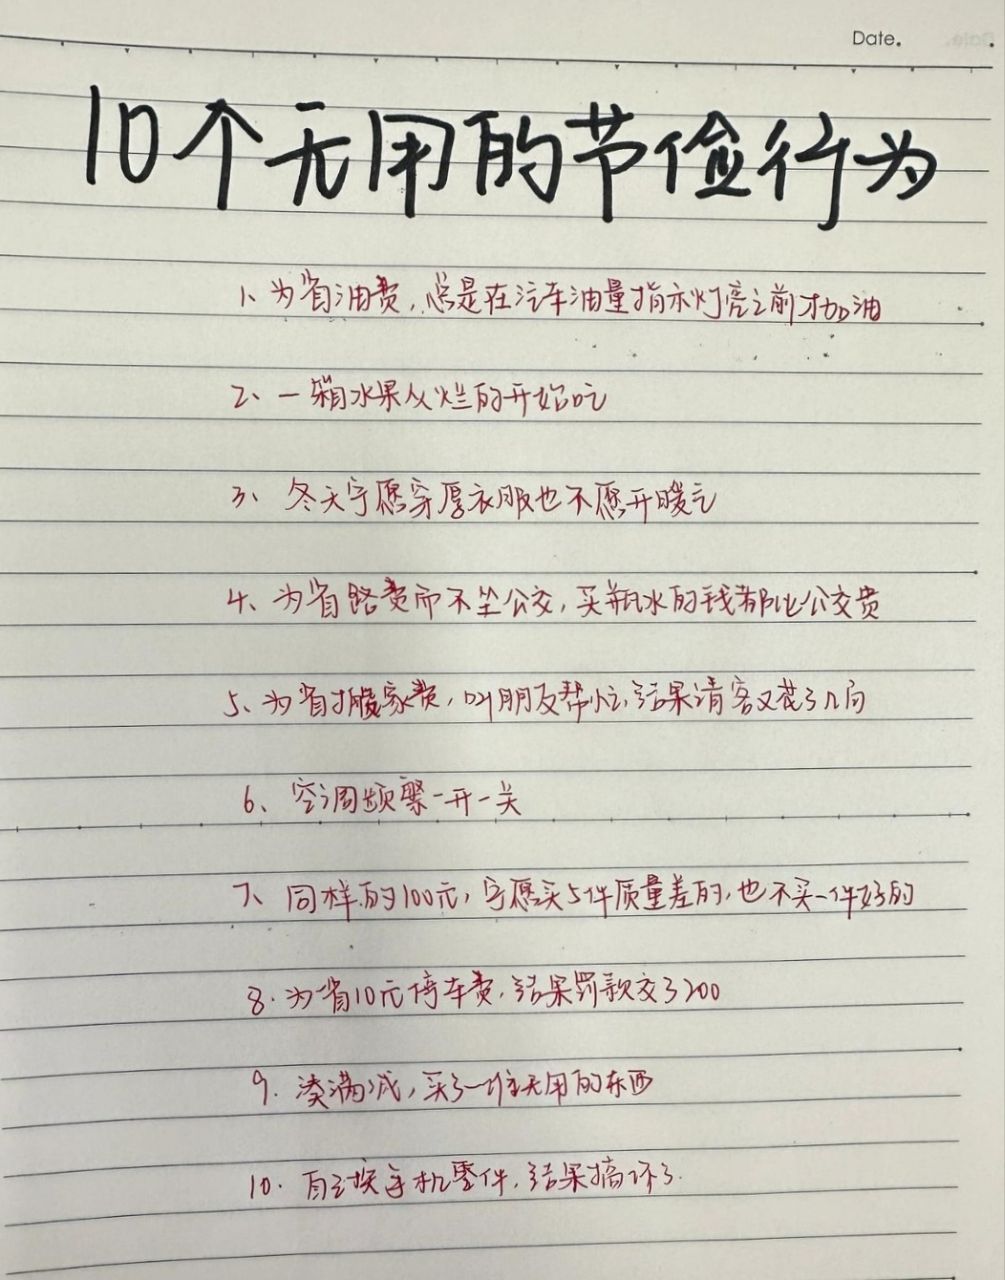 Date.
10个无用的节俭行为
1、为省油费,总是在汽车油量指示灯亮之前才加油
2、一箱水果从烂的开始吃
3、冬天宁愿穿厚衣服也不愿开暖气
4、为省路费而不坐公交,买瓶水的钱都比公交贵
5、为省搬家费,叫朋友帮忙,结果请客又花了几百
6、空调频繁一开一关
7、同样的100元,宁愿买5件质量差的,也不买一件好的
8.为省10元停车费,结果罚款交了200
9.凑满减,买了一堆无用的东西
10.自己换手机零件,结果搞坏了.